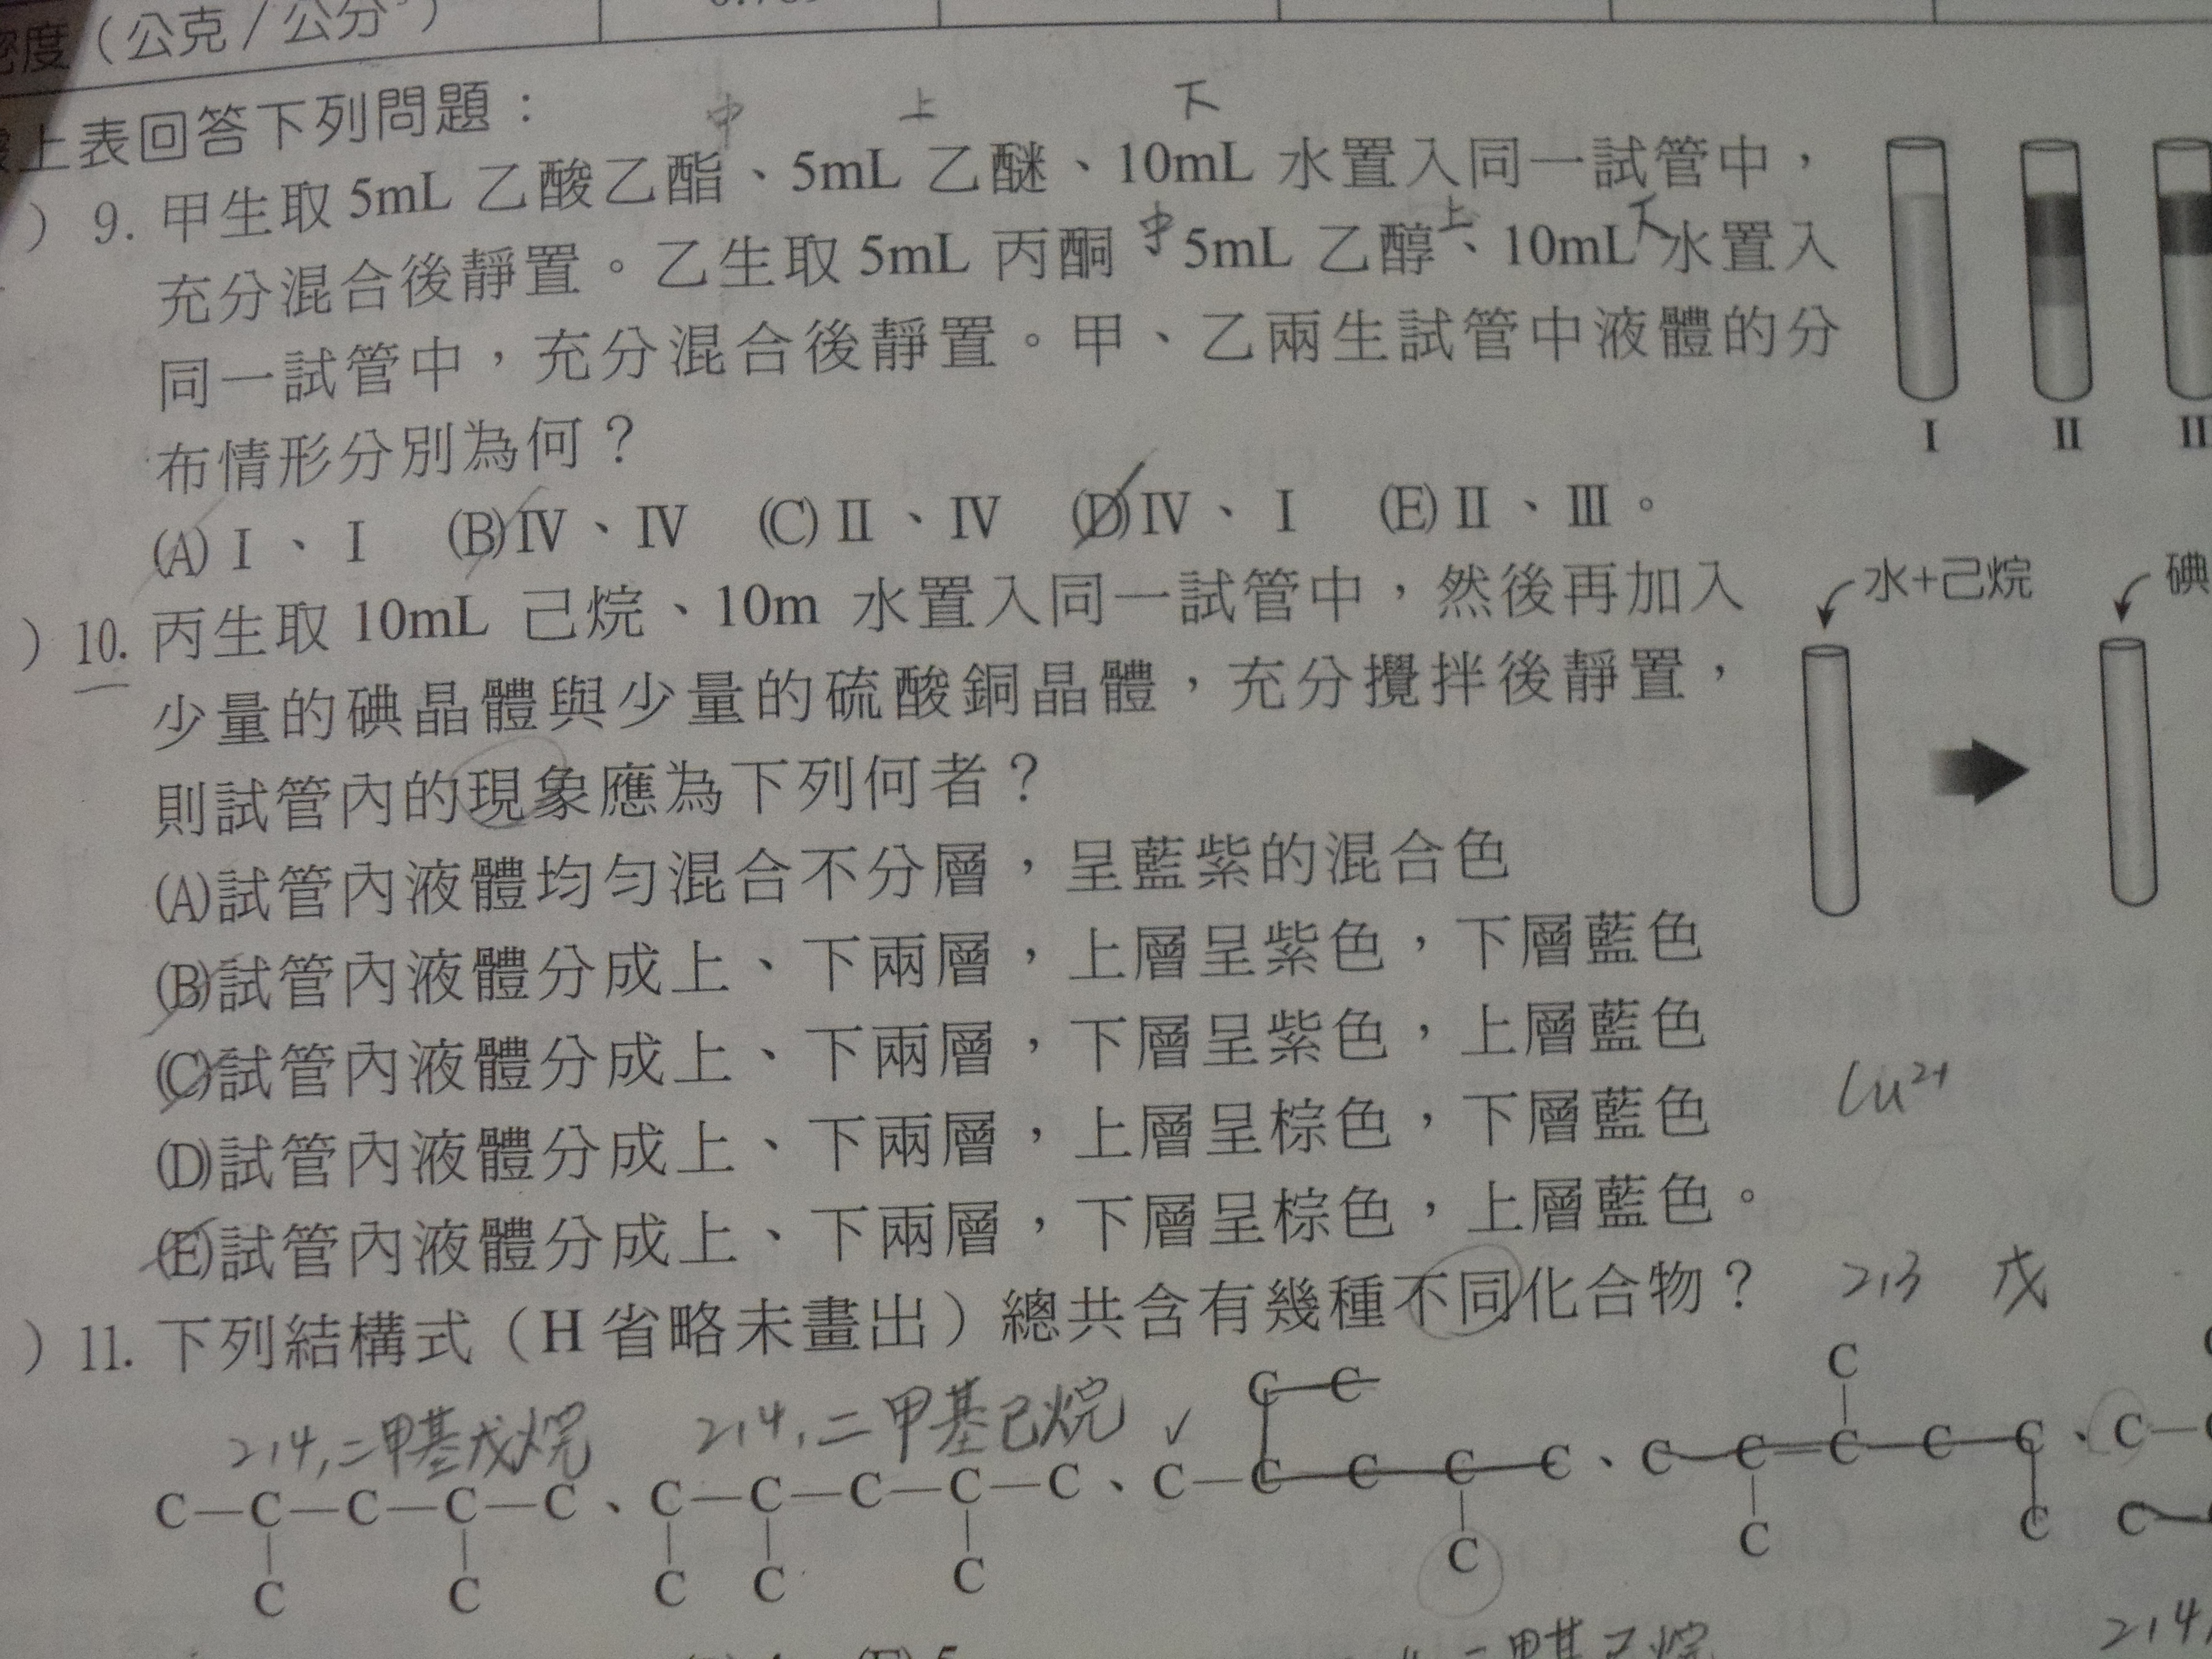 密度（公克/公分³）
據上表回答下列問題：
中 上 下
）9. 甲生取 5mL 乙酸乙酯、5mL 乙醚、10mL 水置入同一試管中，
中 上 下
充分混合後靜置。乙生取 5mL 丙酮、5mL 乙醇、10mL 水置入
同一試管中，充分混合後靜置。甲、乙兩生試管中液體的分
布情形分別為何？
I II II
(A)Ⅰ、Ⅰ (B)Ⅳ、Ⅳ (C)Ⅱ、Ⅳ (D)Ⅳ、Ⅰ (E)Ⅱ、Ⅲ。
水+己烷 碘
）10. 丙生取 10mL 己烷、10m 水置入同一試管中，然後再加入
少量的碘晶體與少量的硫酸銅晶體，充分攪拌後靜置，
則試管內的現象應為下列何者？
(A)試管內液體均勻混合不分層，呈藍紫的混合色
(B)試管內液體分成上、下兩層，上層呈紫色，下層藍色
(C)試管內液體分成上、下兩層，下層呈紫色，上層藍色
Cu²⁺
(D)試管內液體分成上、下兩層，上層呈棕色，下層藍色
(E)試管內液體分成上、下兩層，下層呈棕色，上層藍色。
2,3 戊
）11. 下列結構式（H 省略未畫出）總共含有幾種不同化合物？
2,4,二甲基戊烷 2,4,二甲基己烷 ✓ C—C C
C—C—C—C—C、C—C—C—C—C、C—C—C—C—C、C—C=C—C—C、C—
C C C C C C C C C
二甲基己烷 2,4,
(E) 5